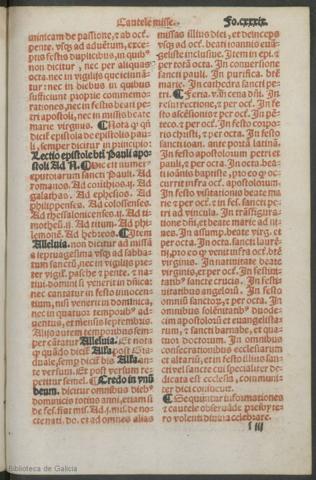 Cautele misse. Fo.cxxxix.
minicam de passione, et ab oct.
pente. vsq; ad aduentū, exce-
ptis festis duplicibus, in quib9
non dicitur, nec per aliquas
octa. nec in vigiliis que ieiunā-
tur: nec in diebus in quibus
sufficiunt proprie commemo-
rationes, nec in festis beati pe-
tri apostoli, nec in missis beate
marie virginis. ¶ Nota q̄ quā
dicit epistola de epistolis pau-
li, semper dicitur in principio
Lectio epistole bti Pauli apo-
stoli Ad
epistolarum sancti Pauli. Ad
romanos. Ad corinthios.ij. Ad
galathas. Ad ephesios. Ad
philippenses. Ad colossenses.
Ad thessalonicenses.ij. Ad ti-
motheū.ij. Ad titum. Ad phi-
lemonē. Ad hebreos. ¶ Item
Alleluia. non dicitur ad missā
a septuagesima vsq; ad sabba-
tum sanctū, nec in vigiliis pre-
ter vigil. pasche et pente. et na-
tiui. domini si venerit in dn̄ica:
nec cantatur in festo innocen-
tium, nisi venerit in dominica,
nec in quatuor temporib9 ad-
uentus, et mensis septembris.
Alijs autem temporibus sem-
per cātatur Alleluia. Et nota
q̄ quādo dicit Alla. post Gra-
duale, semp dicit bis Alla. an-
te versum. Et post versum re-
petitur semel. ¶ Credo in vnū
deum. dicitur omnibus dieb9
dominicis totius anni, etiam si
de fes. fiat
nati do. et ad omnes alias
missas illius diei, et deinceps
vsq; ad oct. beati ioannis euan-
geliste inclusiue. Item in epi. et
per totam octa. In conuersione
sancti pauli. In purifica. btē
marie. In cathedra sancti pe-
tri. ¶ Feria. v. in cena dn̄i. In
resurrectione, et per oct. In fe-
sto ascēsionis et per oct. In pē-
teco. et per oct. In festo corpo-
ris christi, et per octa. In festo
sancti ioan. ante portā latinā.
In festo apostolorum petri et
pauli, et per octa. In octa. bea-
ti ioannis baptiste, pro eo q̄ oc-
currit infra oct. apostolorum.
In festo visitationis beate ma-
rie et per oct. et in fes. sancti pe-
tri ad vincula. In trāsfigura-
tione dn̄i, et beate marie ad ni-
ues. In assump. beate virg. et
per octa. In octa. sancti laurē-
ti, pro eo q̄ venit infra oct. btē
virginis. In natiuitate beate
virginis, et per oct. In festiui-
tatib9 sancte crucis. In festi-
uitatibus angelorū. In festo
omniū sanctor. et per octa. In
omnibus solēnitatib9 duode-
cim apostolorū et euangelista-
rum, et sancti barnabe, et qua-
tuor doctorum. In omnibus
consecrationibus ecclesiarum
et altaris, et in festo illius san-
cti vel sancte cui specialiter de-
dicata est ecclesia, commini-
ter dici consueuit.
¶ Sequuntur informationes
et cautele obseruāde presbyte-
ro volenti diuina celebrare.
iij
Biblioteca de Galicia